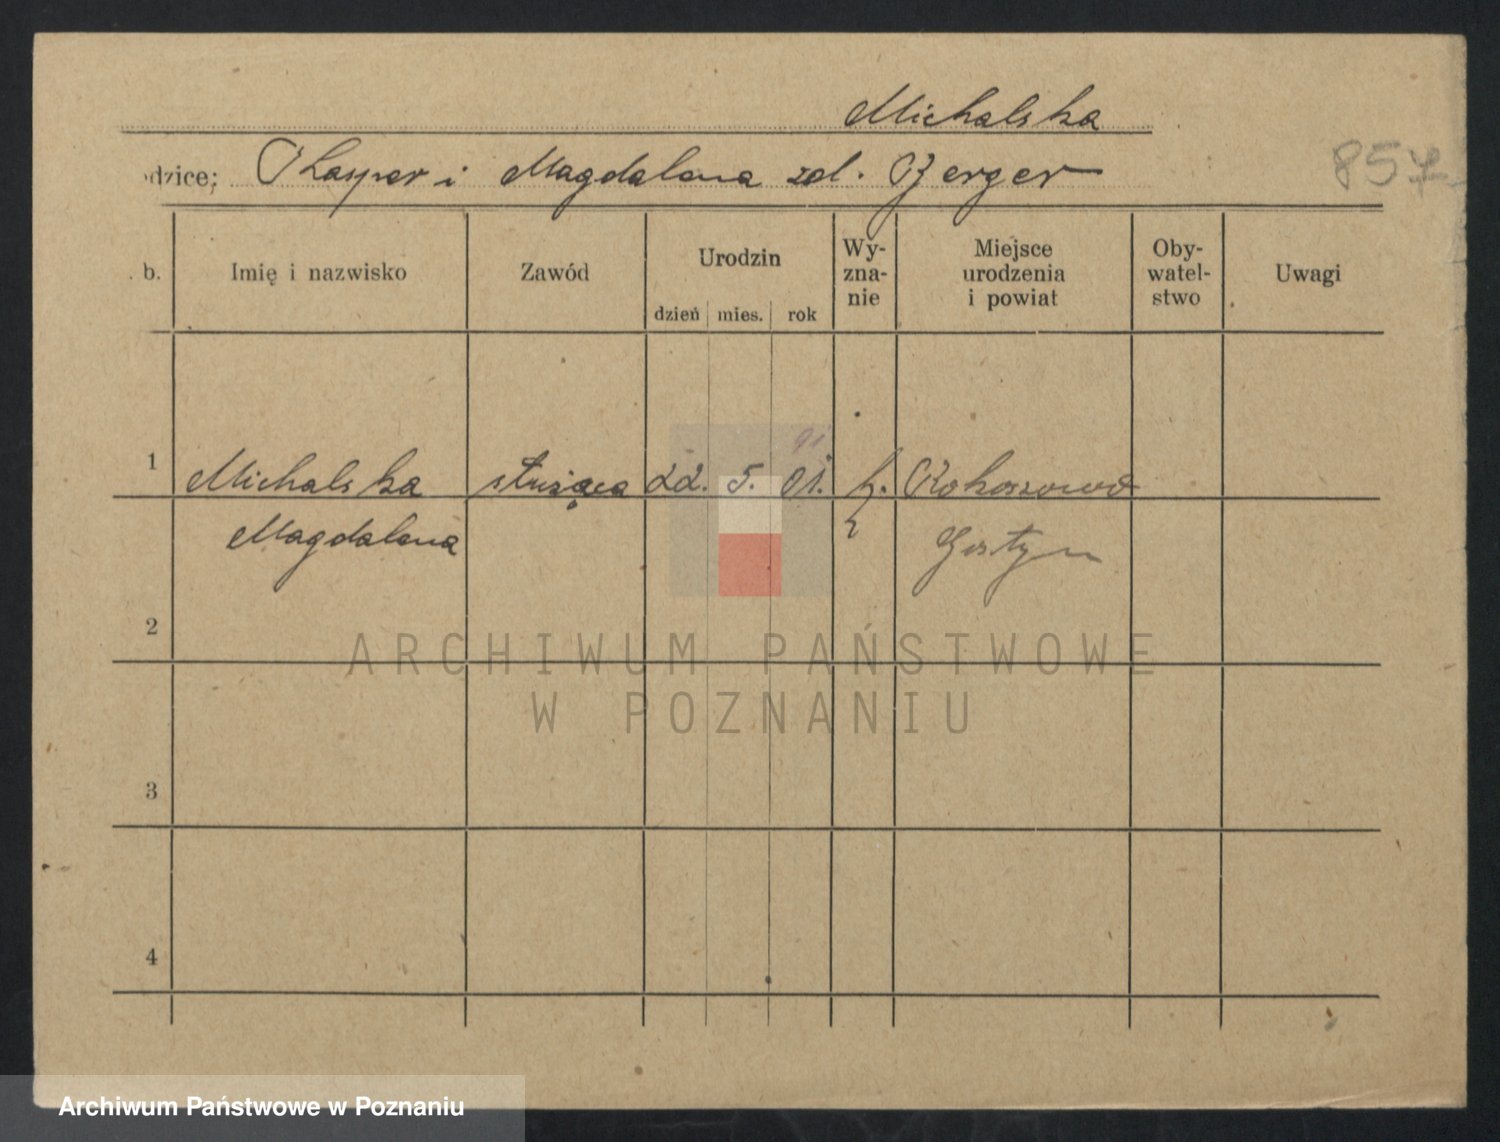 Michalska
odzice: Kasper i Magdalena zd. Berger
857
b. Imię i nazwisko Zawód Urodzin dzień mies. rok Wy-zna-nie Miejsce urodzenia i powiat Oby-watel-stwo Uwagi
91
1 Michalska służąca 22. 5. 01. k. Rokossowo
Magdalena Gostyn
2
ARCHIWUM PAŃSTWOWE
W POZNANIU
3
4
Archiwum Państwowe w Poznaniu